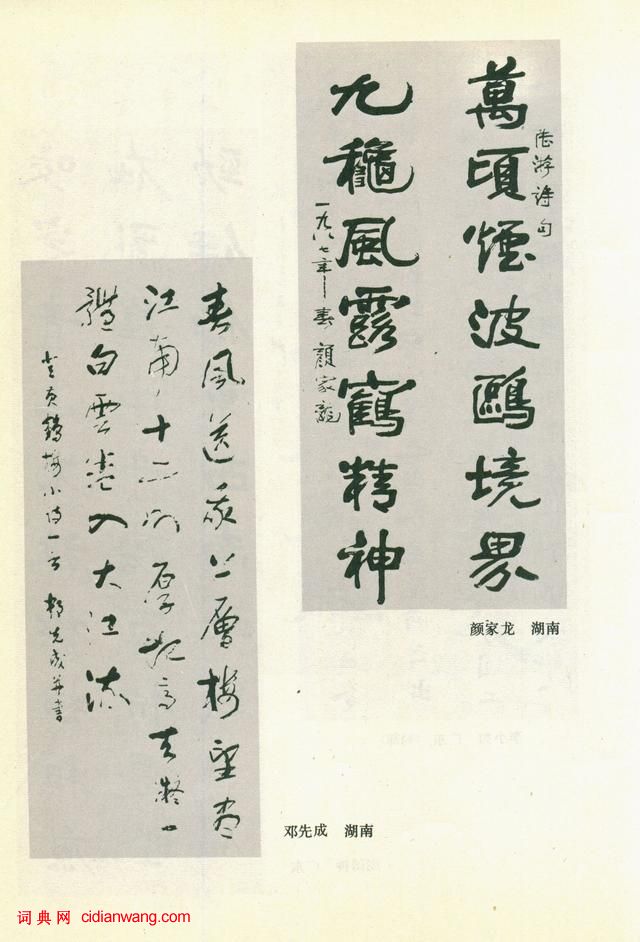 萬頃煙波鷗境界
陸游詩句
九穐風露鶴精神
一九八七年春 顏家龍
颜家龙 湖南
春風送我上層樓望盡
江南十二州厚地高天凝一
體白雲卷入大江流
登黃鶴樓小诗一首 鄧先成并書
邓先成 湖南
词典网 cidianwang.com